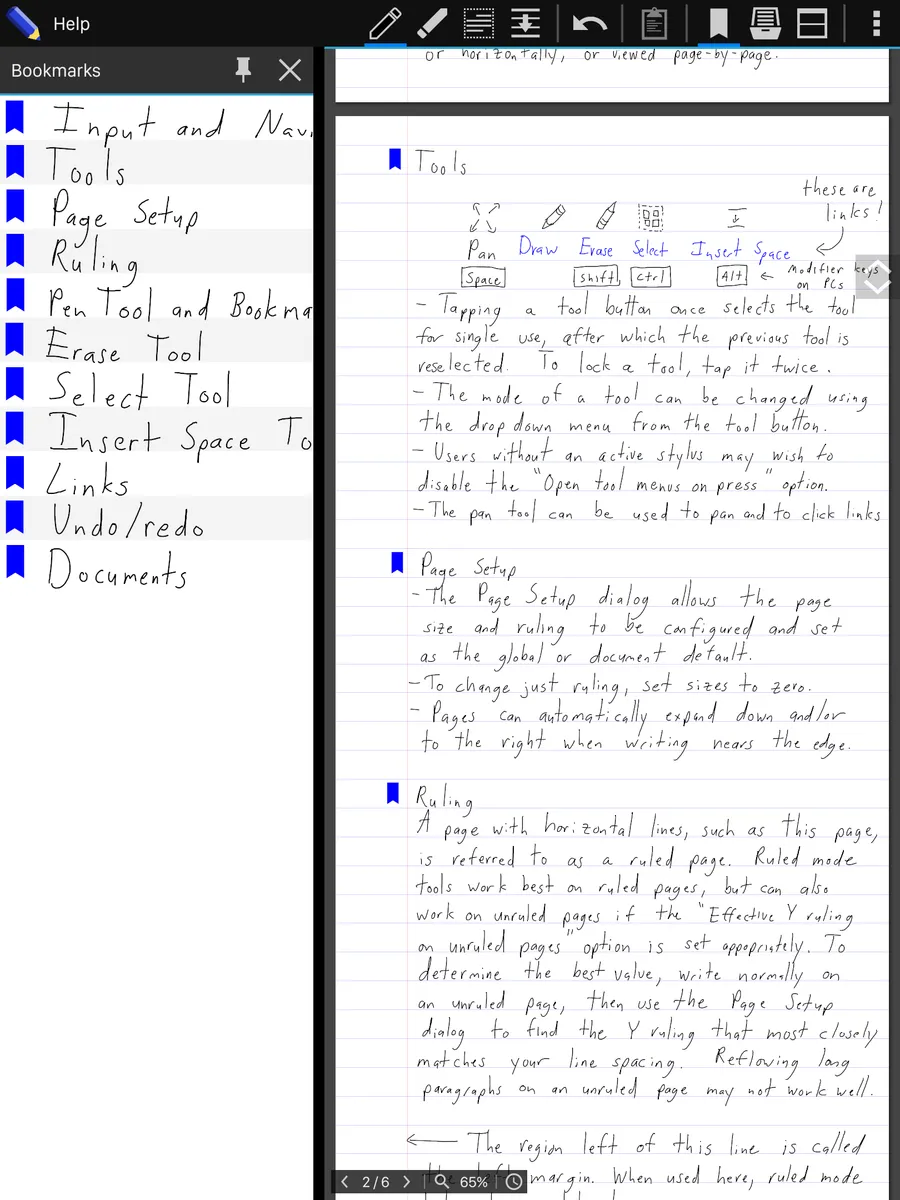 Help
Bookmarks
Input and Nav
Tools
Page Setup
Ruling
Pen Tool and Bookma
Erase Tool
Select Tool
Insert Space To
Links
Undo/redo
Documents
or horizontally, or viewed page-by-page.
Tools
these are
links!
Pan Draw Erase Select Insert Space
Space Shift Ctrl Alt ← Modifier keys
on PCs
- Tapping a tool button once selects the tool
for single use, after which the previous tool is
reselected. To lock a tool, tap it twice.
- The mode of a tool can be changed using
the drop down menu from the tool button.
- Users without an active stylus may wish to
disable the "Open tool menus on press" option.
- The pan tool can be used to pan and to click links
Page Setup
- The Page Setup dialog allows the page
size and ruling to be configured and set
as the global or document default.
- To change just ruling, set sizes to zero.
- Pages can automatically expand down and/or
to the right when writing nears the edge.
Ruling
A page with horizontal lines, such as this page,
is referred to as a ruled page. Ruled mode
tools work best on ruled pages, but can also
work on unruled pages if the "Effective Y ruling
on unruled pages" option is set appopriately. To
determine the best value, write normally on
an unruled page, then use the Page Setup
dialog to find the Y ruling that most closely
matches your line spacing. Reflowing long
paragraphs on an unruled page may not work well.
← The region left of this line is called
the left margin. When used here, ruled mode
2/6 65%